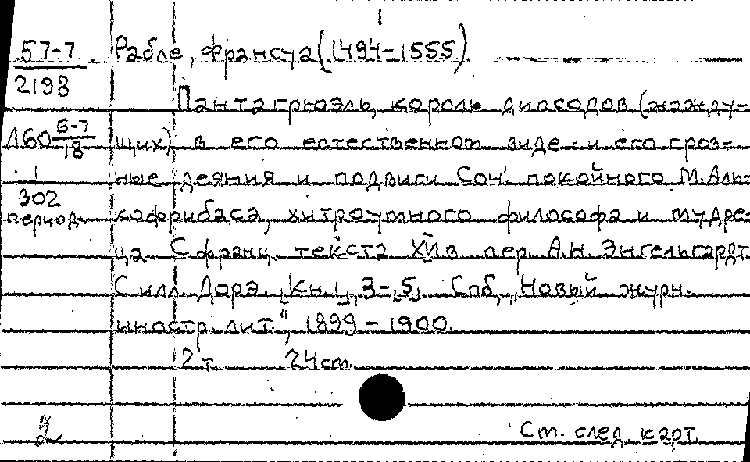 1
57-7
2198
Рабле, Франсуа (1494-1555)
Пантагрюэль, король дипсодов (жажду-
Л60 6-7/18
щих) в его естественном виде и его гроз-
1
302
период.
ные деяния и подвиги Соч. покойного М. Аль-
кофрибаса, хитроумного философа и мудре-
ца. С франц. текста XVI в. пер. А.Н. Энгельгардт.
С илл. Дорэ. [Кн. 1, 3-5]. Спб, "Новый журн.
иностр. лит.", 1899-1900.
2 т. 24 cm.
2
См. след. карт.